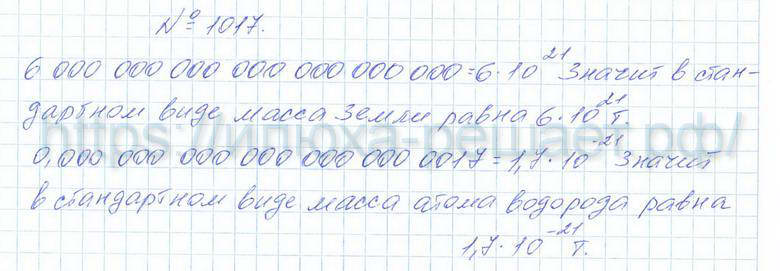 № 1017.
6 000 000 000 000 000 000 000 = 6 · 10²¹ Значит в стан-
дартном виде масса Земли равна 6 · 10²¹ т.
https://илюха-решает.рф/
0,000 000 000 000 000 000 0017 = 1,7 · 10⁻²¹ Значит
в стандартном виде масса атома водорода равна
1,7 · 10⁻²¹ т.